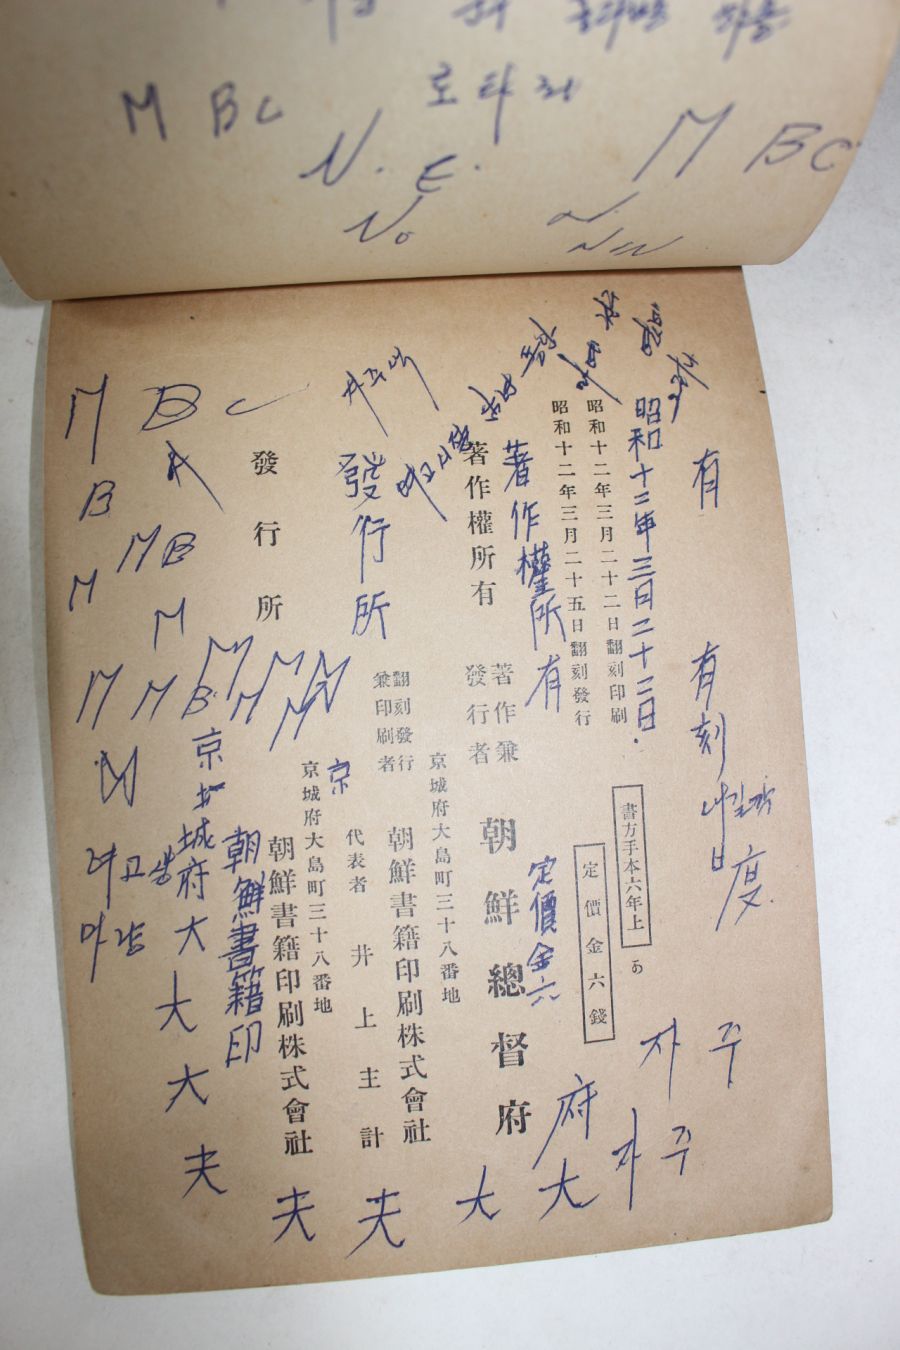 M BC
로타리
N. E.
M BC
No
N
NW
昭和十二年三月二十二日翻刻印刷
昭和十二年三月二十五日翻刻發行
書方手本六年上
あ
定價金六錢
著作權所有
著作兼發行者
朝鮮總督府
京城府大島町三十八番地
翻刻發行兼印刷者
朝鮮書籍印刷株式會社
代表者 井上主計
京城府大島町三十八番地
發行所
朝鮮書籍印刷株式會社
有
有刻
度
昭和十二年三日二十二日.
著作權所有
定價金六
府
發行所
京
朝鮮書籍印
京
城府大
大
大
夫
夫
夫
大
大
자주
자주
M B C
B
M
M B
M
M
M
M
M
M
M B
M